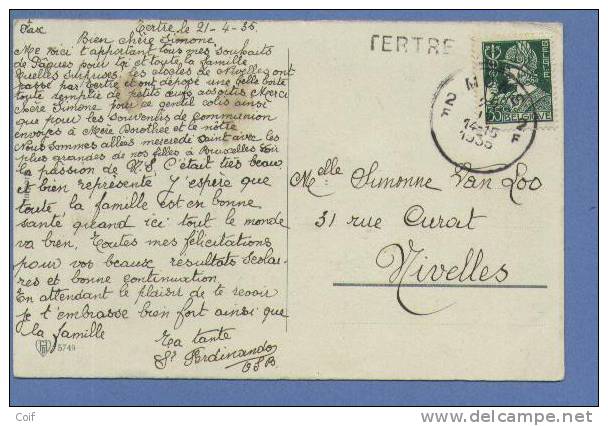 Pax
Tertre le 21-4-35.
Bien chère Simone,
Me voici t'apportant tous mes souhaits
de Pâques pour toi et toute la famille
Quelles surprises: les cloches de Nivelles ont
passé par Tertre et ont déposé une belle boîte
toute remplie de petits œufs assortis Merci
chère Simone pour ce gentil colis ainsi
que pour les souvenirs de communion
envoyés à Mère Dorothée et le nôtre
Nous sommes allées mercredi saint avec les
plus grandes de nos filles à Bruxelles voir
la passion de N.S. C'était très beau
et bien représenté J'espère que
toute la famille est en bonne
santé quand ici tout le monde
va bien. Toutes mes félicitations
pour vos beaux résultats scolai-
res et bonne continuation.
En attendant le plaisir de te revoir
je t'embrasse bien fort ainsi que
la famille
Ta tante
Sr Ferdinando
OSB.
5749
TERTRE
BELGIQUE BELGIË
14-15
1935
2F 2F
Melle Simonne Van Loo
31 rue Curat
Nivelles
Coif
©delcampe.net